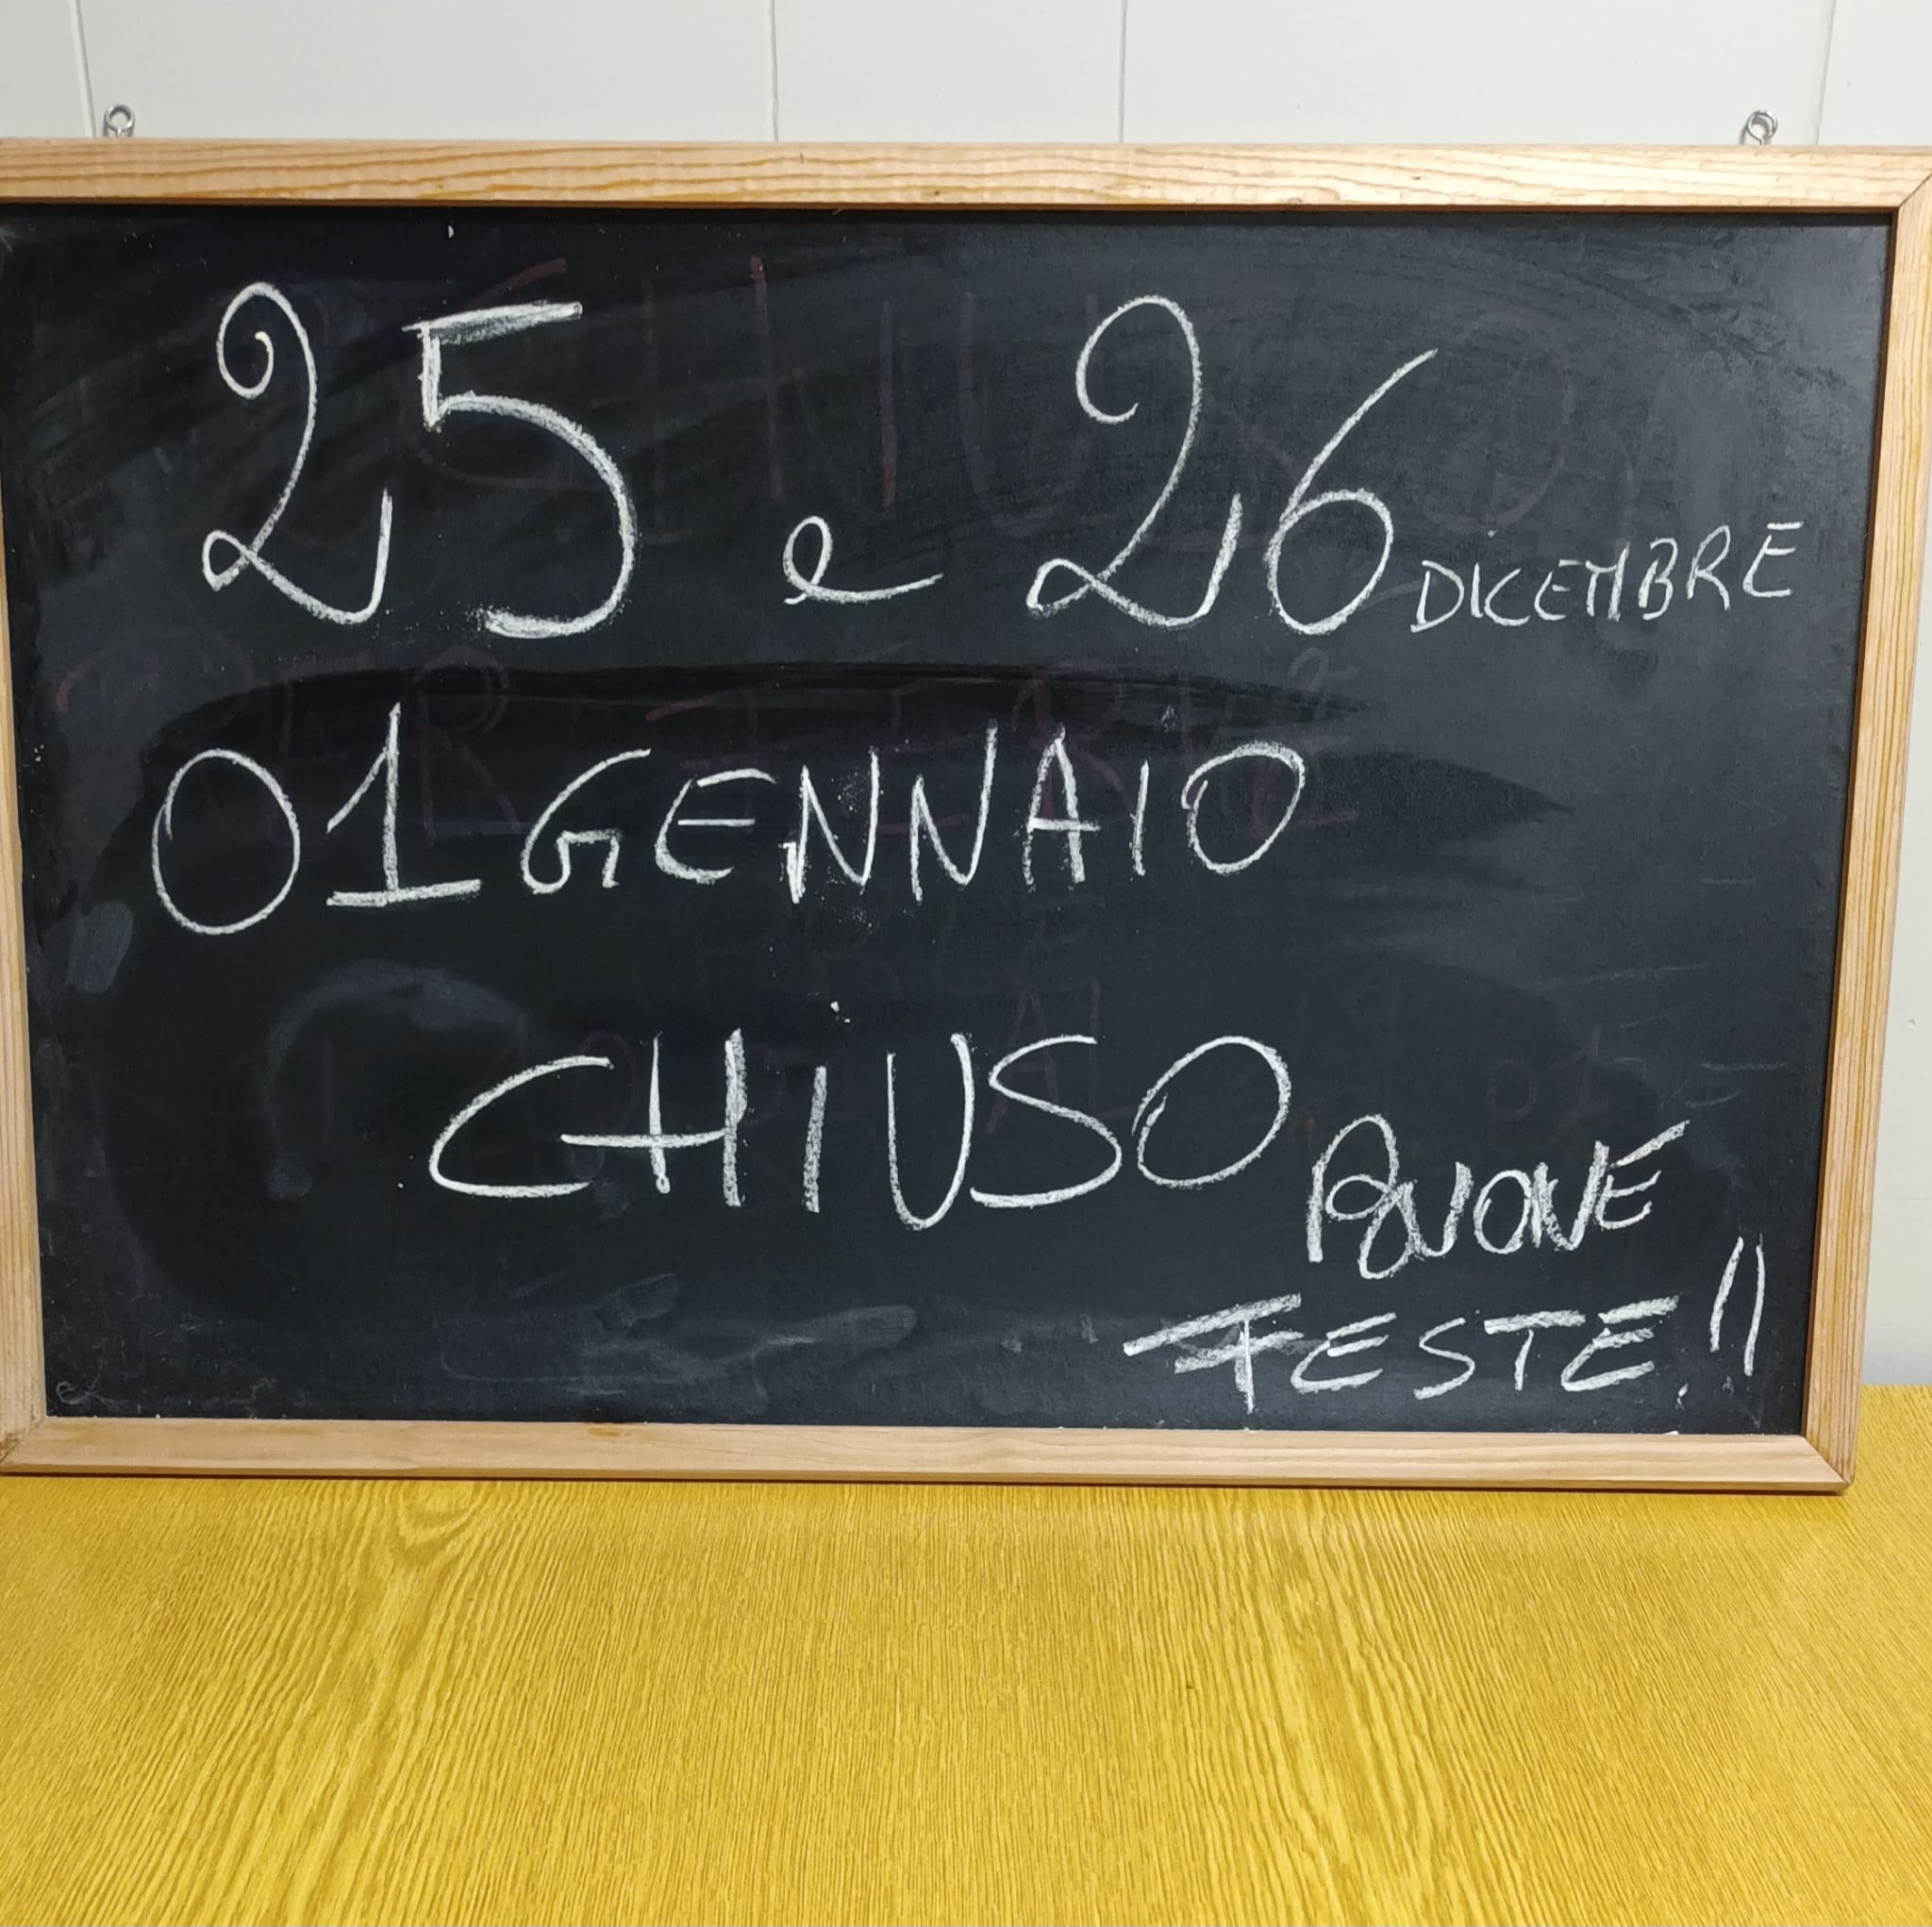 25 e 26 DICEMBRE
01 GENNAIO
CHIUSO
BUONE
FESTE!!